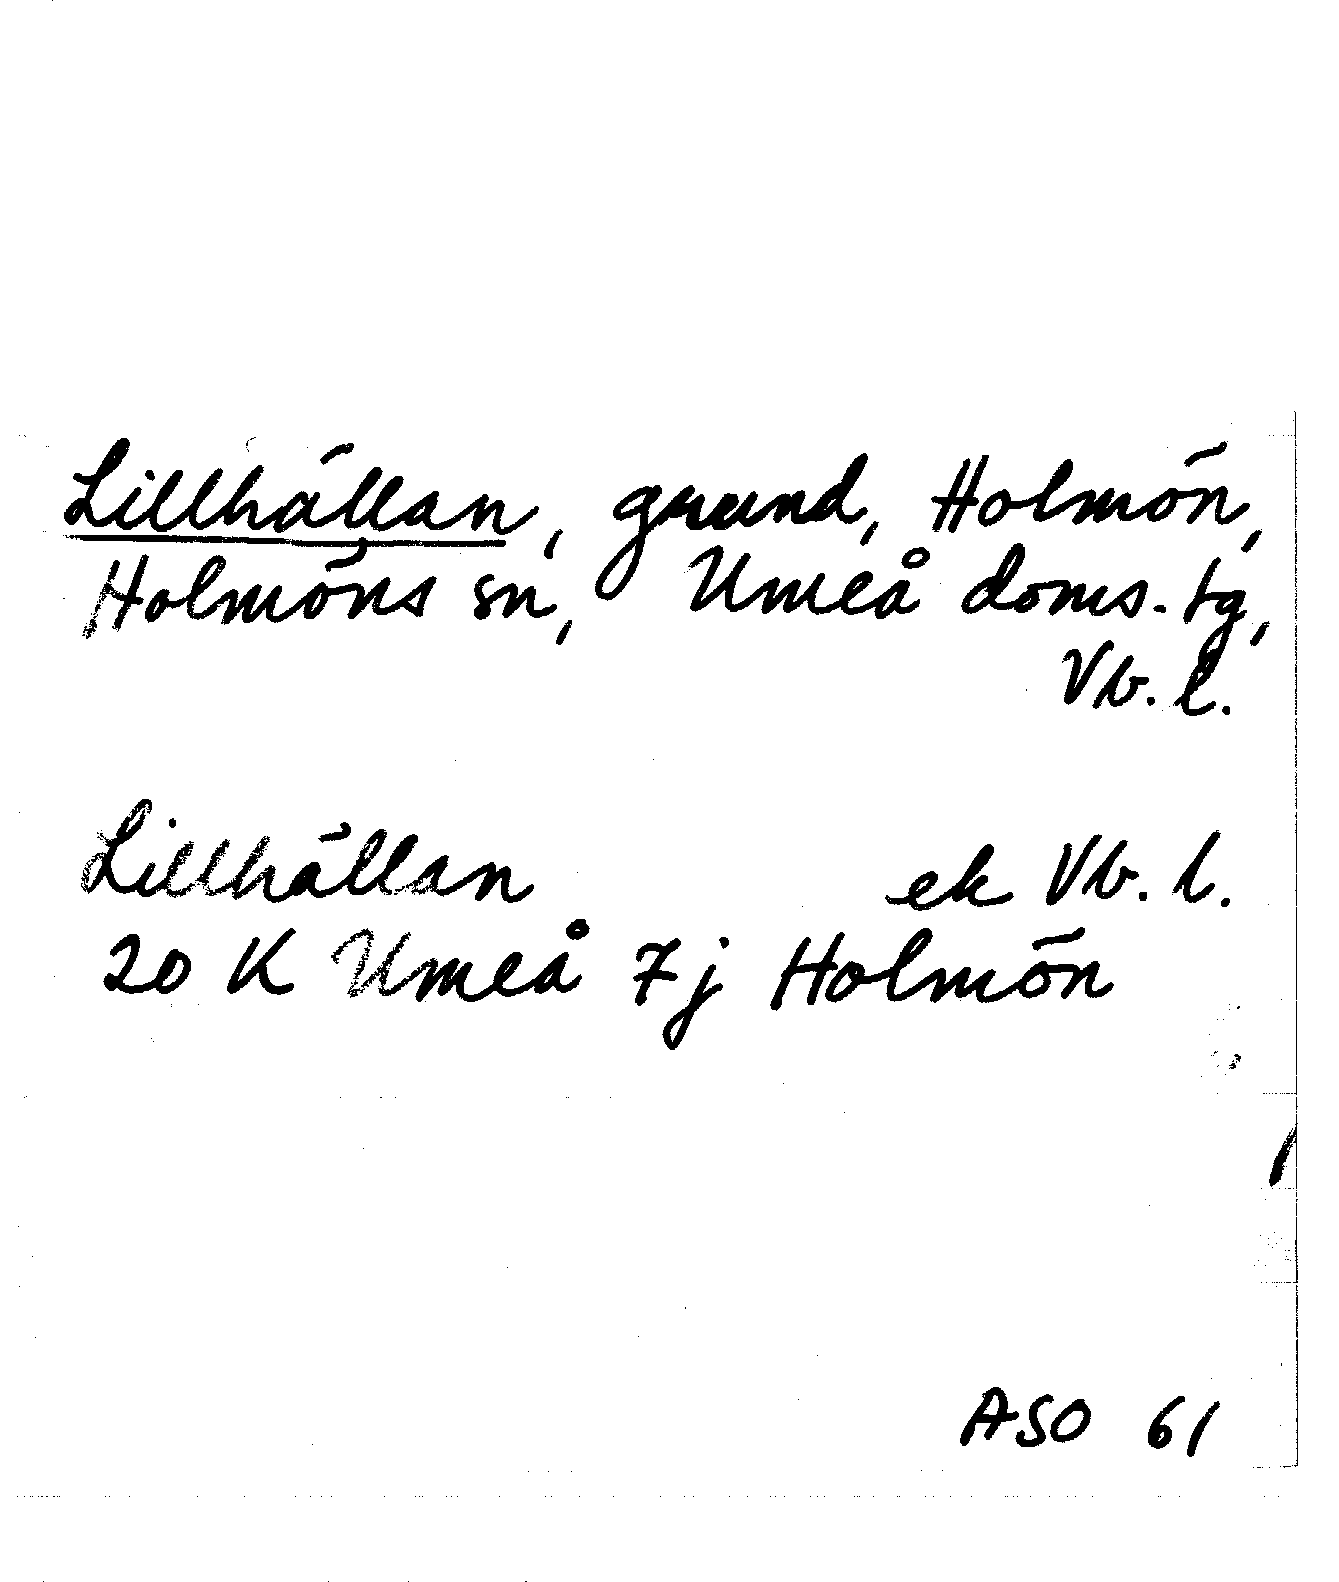 Lillhällan, grund, Holmön,
Holmöns sn, Umeå doms.tg,
Vb. l.
Lillhällan ek Vb. l.
20 K Umeå 7j Holmön
ASO 61